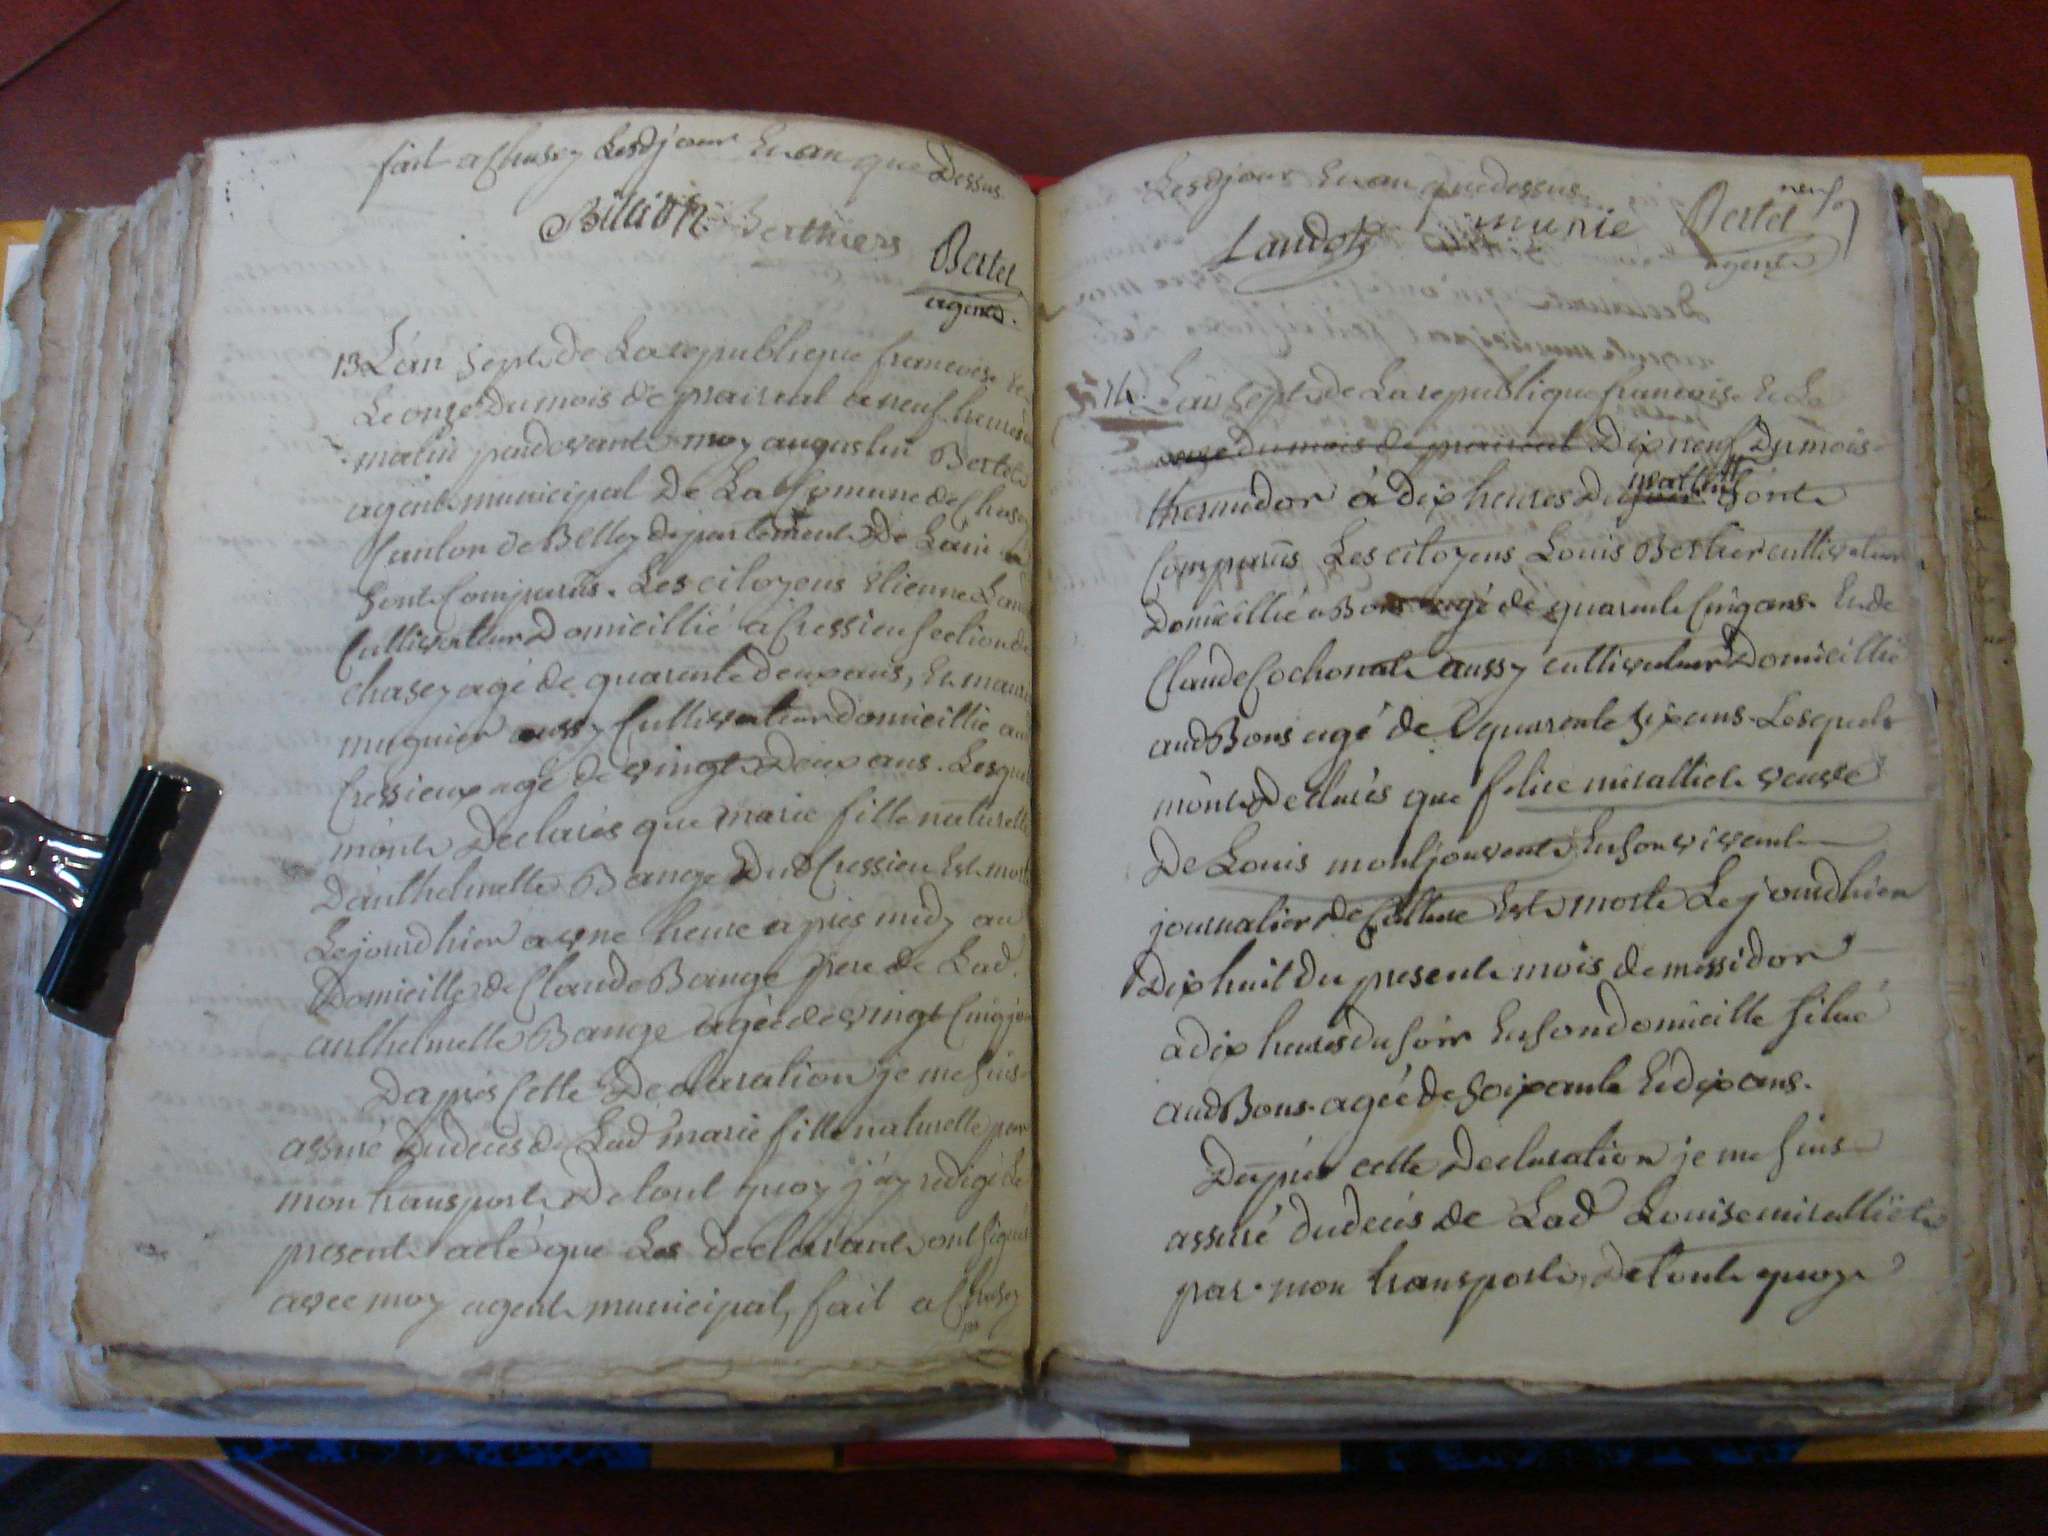 fait a Chasey Lesd jour Et an que Dessus
Billion Berthiers
Bertet
agent
13 L'an Sept de La republique francoise Et
Le onze Du mois de prairial a neuf heures
matin pardevant moy augustin Bertet
agent municipal De La Comune de Chasey
Canton de Belley departement De Lain
Sont Comparus. Les citoyens Etienne
Cultivateur Domicillié a Cressieu section de
chasey agé de quarente deux ans, Et
mugnier aussy Cultivateur domicillié au
Cressieux agé de vingt Deux ans. Lesquels
mont Declarés que marie fille naturelle
Danthelmette Bange Dud Cressieu Est morte
Lejourdhier a une heure apres midy au
Domicille de Claude Bange pere de Lad.
anthelmette Bange agée de vingt Cinq jours
Dapres Cette Declaration je me suis
assuré Du deces de Lad marie fille naturelle par
mon transport De tout quoy j'ay redigé Le
present acte que Les declarant ont signé
avec moy agent municipal, fait a Chasey
Lesd jour Et an que dessus
neuf
Landot munie Bertet
agent
14. L'an Sept de La republique francoise Et Le
onze du mois de prairial Dix neuf Du mois
matin
thermidor à dix heures Du soir Sont
Comparus Les citoyens Louis Bertier cultivateur
Domicillié a Bons agé de quarente Cinq ans. Et de
Claude Cochonat aussy cultivateur Domicillié
aud Bons agé de quarente Six ans. Lesquels
mont Declarés que felise miralliet veuve
De Louis montjouvent En son vivant
journalier de Culture Est morte Le jourdhier
Dix huit du present mois de messidor
a dix heures du soir En son domicille situé
aud Bons. agée de soixante Et dix ans.
Dapres cette Declaration je me suis
assuré du deces de Lad Louise miralliet
par mon transport, De tout quoy